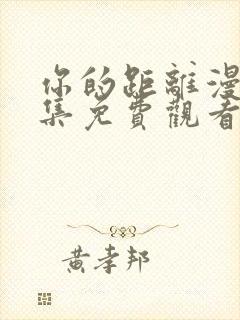 你的距離漫
集免費觀看
黃孝邦